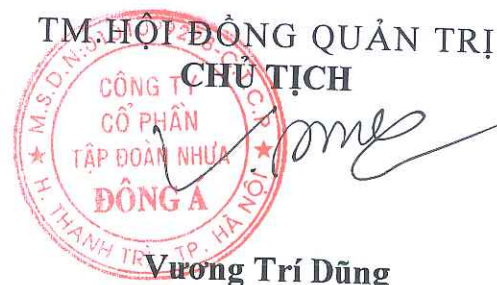 TM.HỘI ĐỒNG QUẢN TRỊ
CHỦ TỊCH
CÔNG TY
CỔ PHẦN
TẬP ĐOÀN NHỰA
ĐÔNG Á
M.S.D.N:
C.T.C.P
H. THANH TRÌ - TP. HÀ NỘI
Vương Trí Dũng